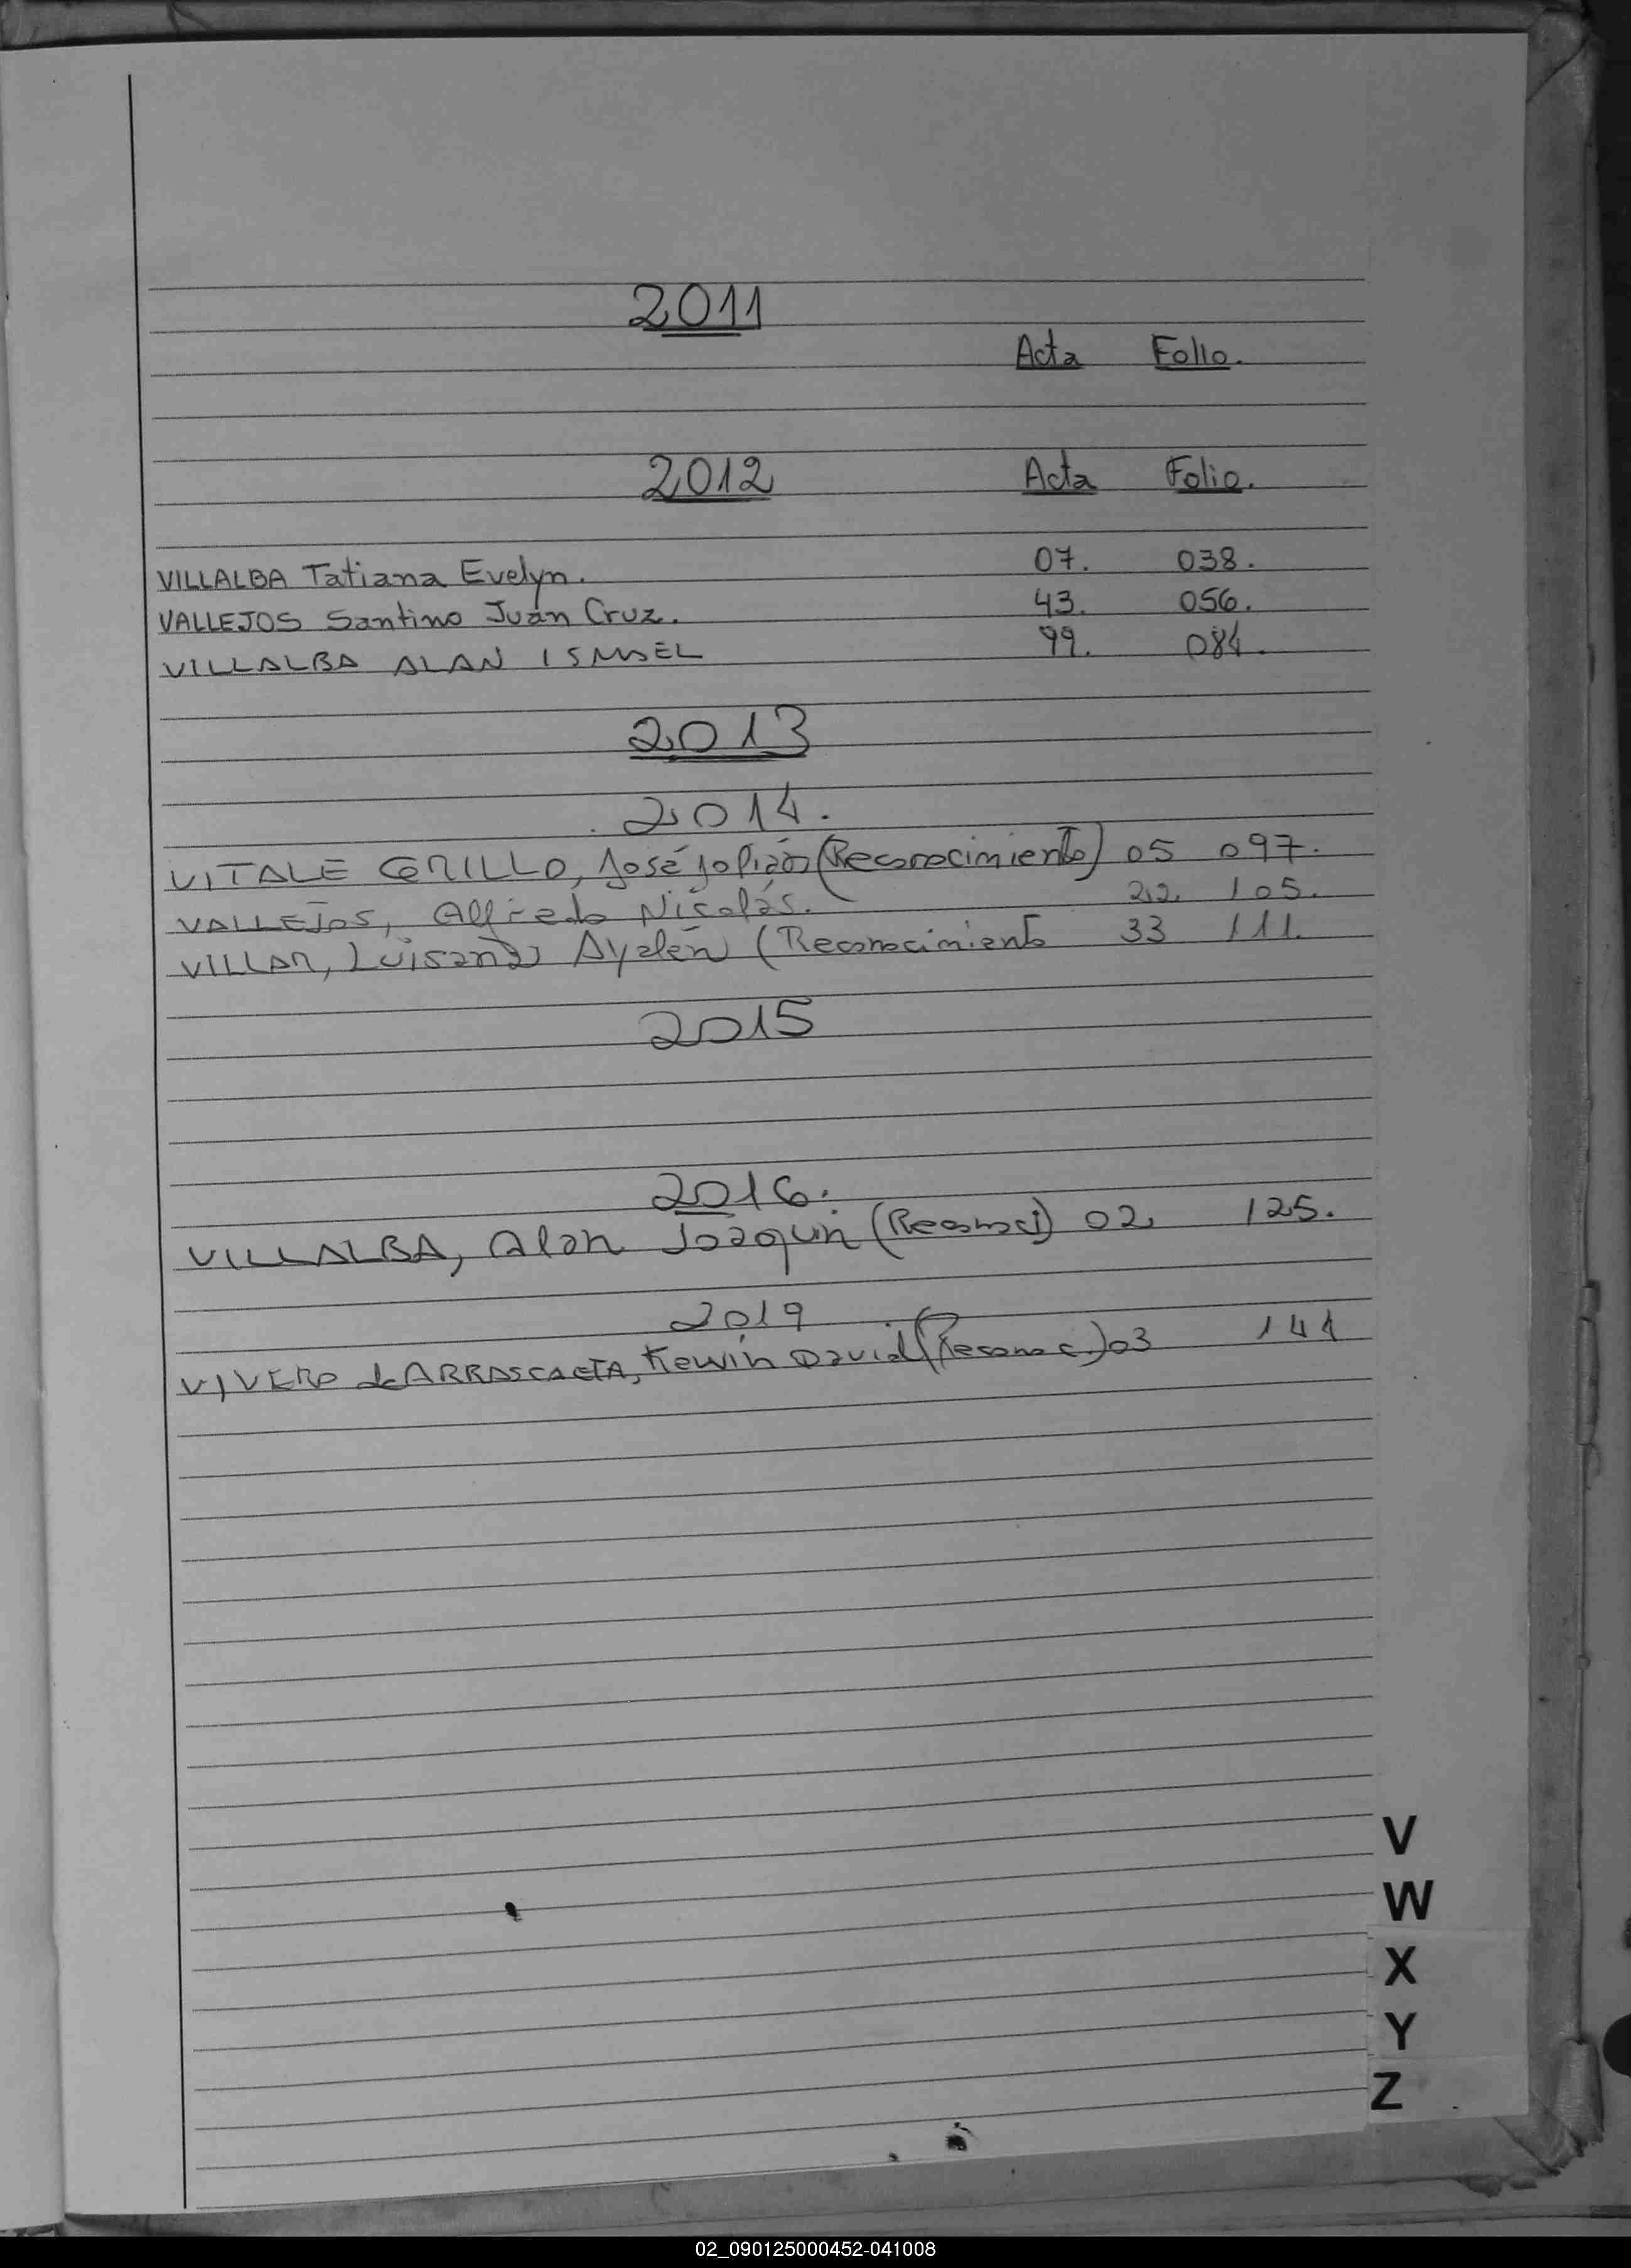 2011
Acta Folio.
2012 Acta Folio.
VILLALBA Tatiana Evelyn. 07. 038.
VALLEJOS Santino Juán Cruz. 43. 056.
VILLALBA ALAN ISMAEL 99. 084.
2013
2014.
VITALE GRILLO, José Julián (Reconocimiento) 05 097.
VALLEJOS, Alfredo Nicolás. 22. 105.
VILLAR, Luisana Ayelén (Reconocimiento 33 111.
2015
2016.
VILLALBA, Alan Joaquin (Reconoci) 02. 125.
2019
VIVERO de ARRASCAETA, Kewin David (Reconoc.) 03 141
V
W
X
Y
Z
02_090125000452-041008